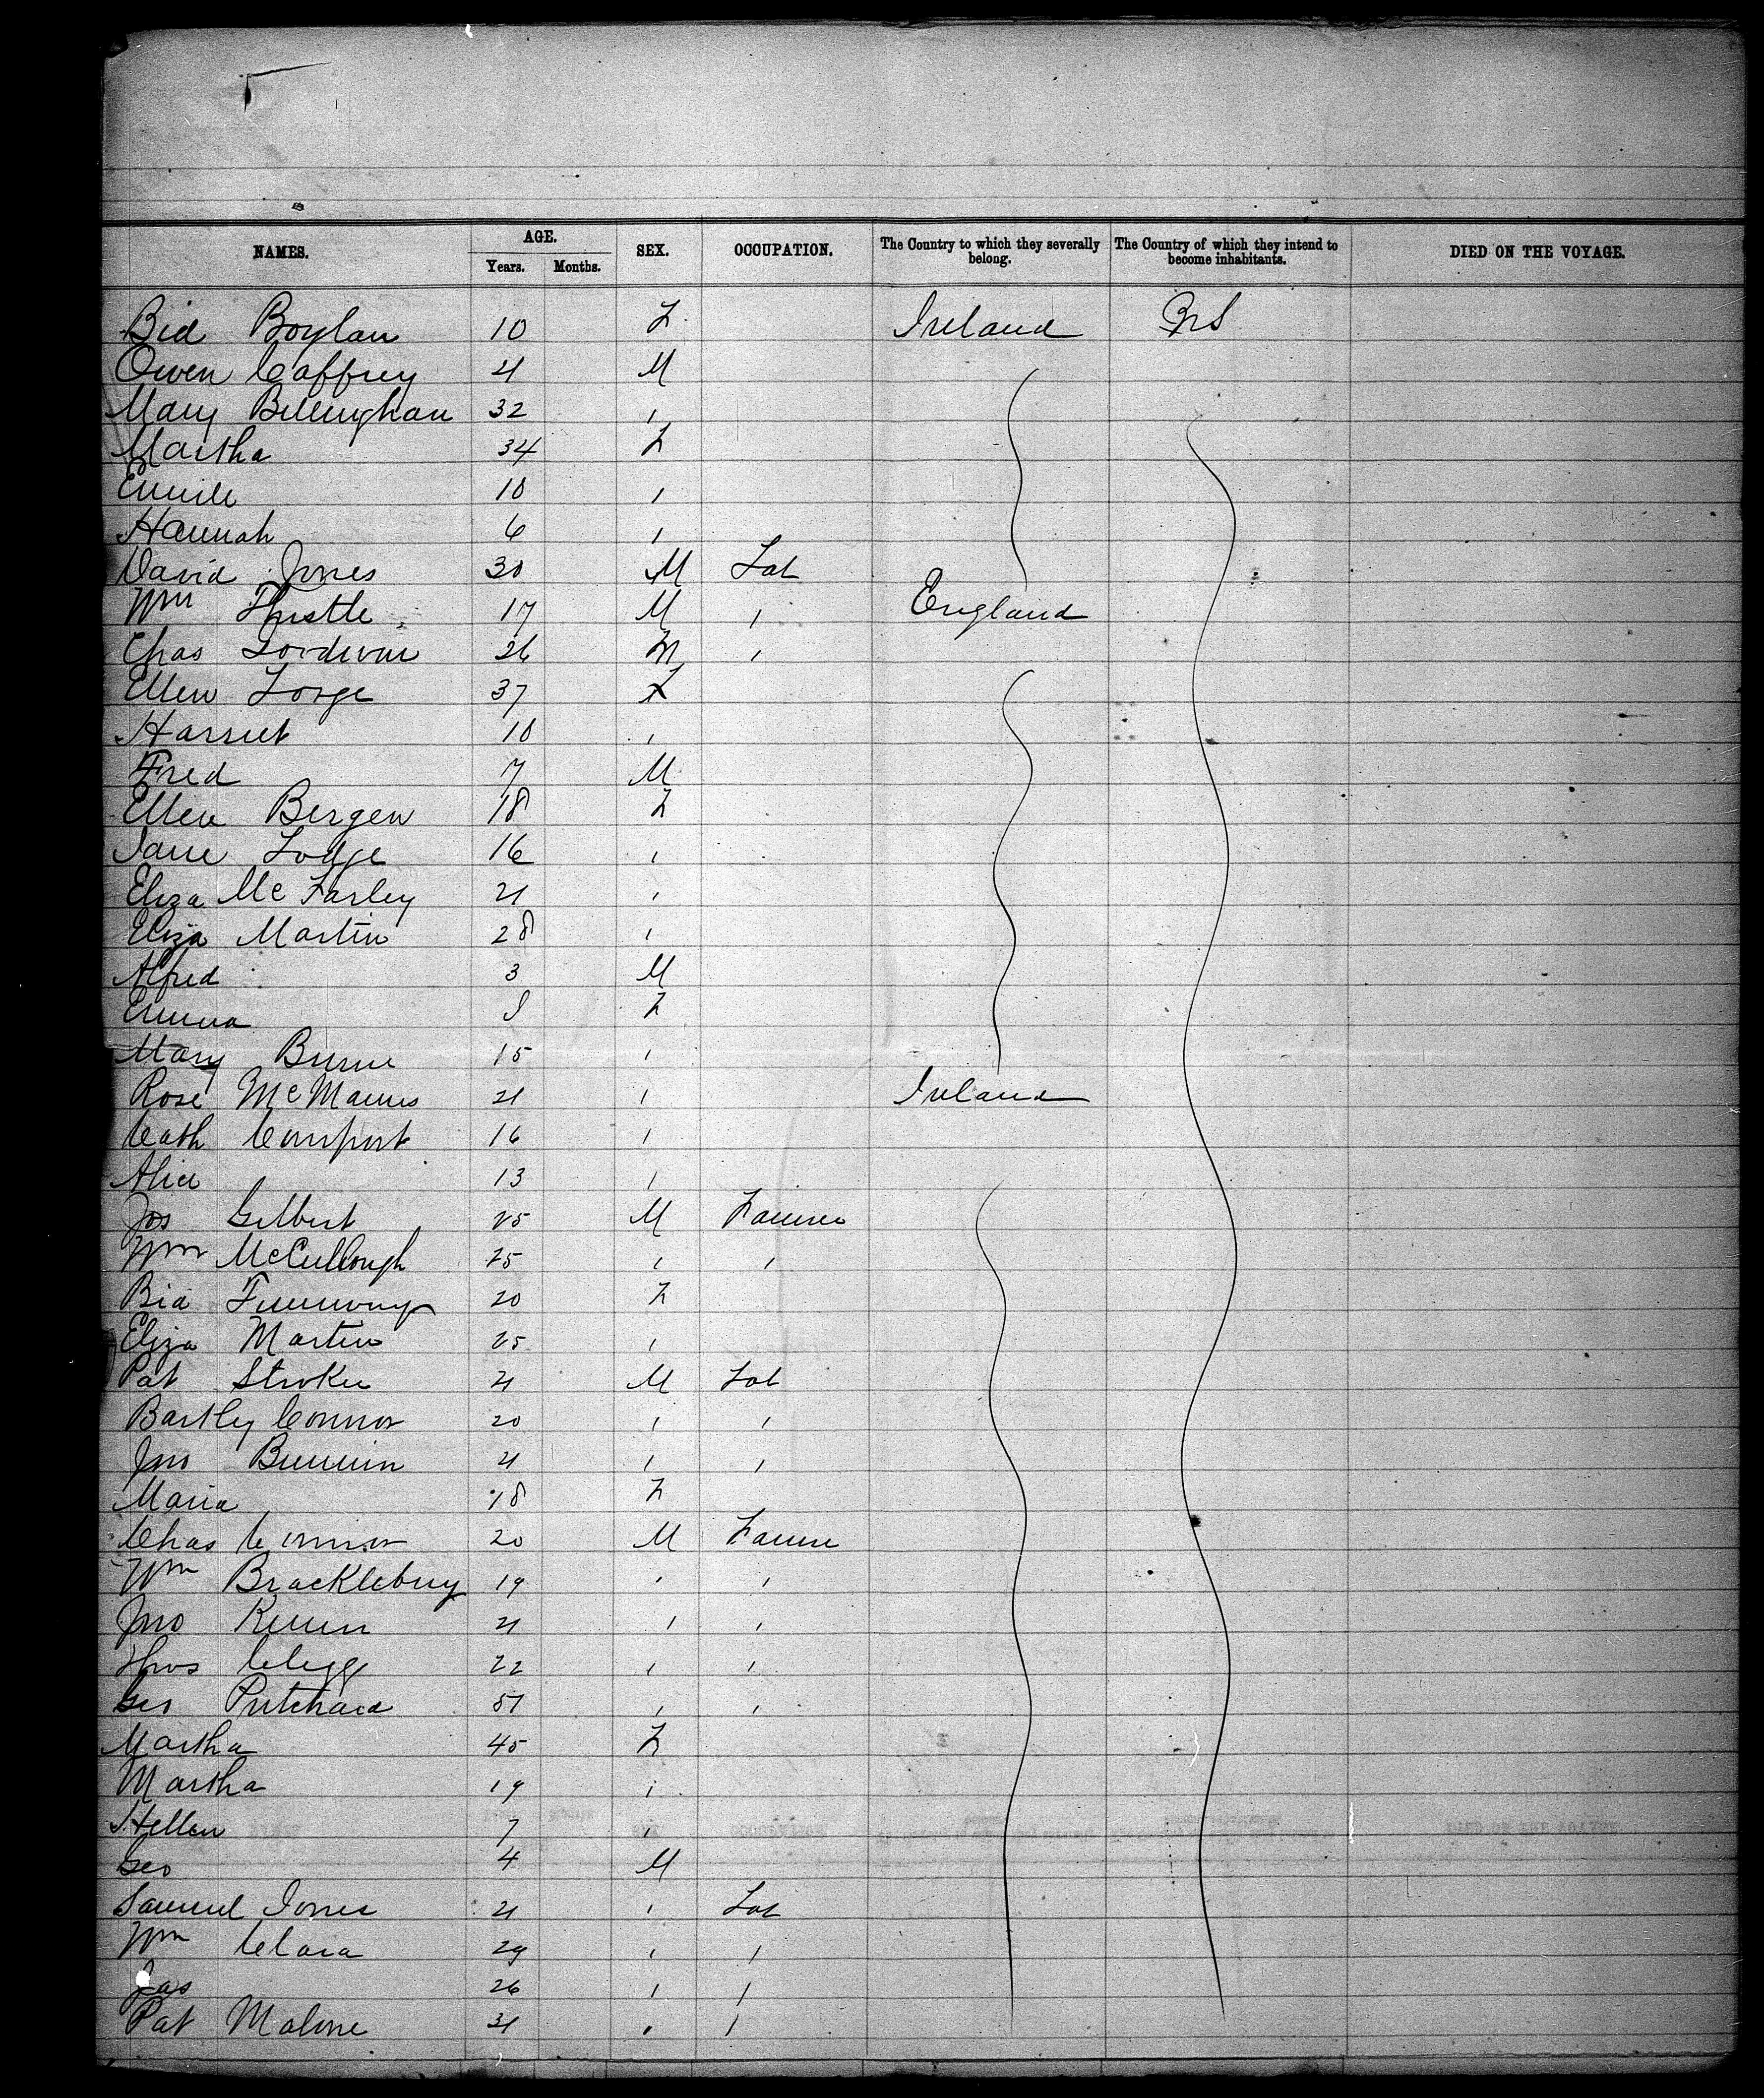 NAMES. AGE. SEX. OCCUPATION. The Country to which they severally belong. The Country of which they intend to become inhabitants. DIED ON THE VOYAGE.
Years. Months.
Bid Boylan 10 F Ireland
Owen Caffrey 21 M
Mary Bellingham 32 "
Martha 34 F
10 "
Hannah 6 "
David Jones 30 M Lab
Wm Thistle 17 M " England
Chas 26 M "
Ellen 37 F
Harriet 10 "
Fred 7 M
Ellen Bergen 18 F
Jane Lodge 16 "
Eliza McFarley 21 "
Eliza Martin 28 "
Alfred 3 M
Emma F
Mary Burne 15 "
Rose McManus 21 " Ireland
Cath Comfort 16 "
Alice 13 "
Jos Gilbert 25 M Farmer
Wm McCullough 25 " "
Bid 20 F
Eliza Martin 25 "
Pat Stroker 21 M Lab
Bartley Connor 20 " "
Jno 21 " "
Maria 18 F
Chas Connor 20 M Farmer
Wm Bracklebury 19 " "
Jno 21 " "
Thos Clegg 22 " "
Geo Pritchard 51 " "
Martha 45 F
Martha 19 "
Hellen 7 "
Geo 4 M
Samuel Jones 21 " Lab
Wm Clara 29 " "
Jas 26 " "
Pat Malone 31 " "